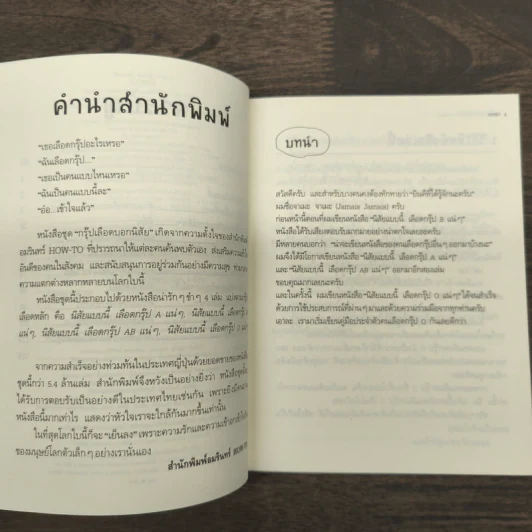 คำนำสำนักพิมพ์
"เธอเลือดกรุ๊ปอะไรเหรอ"
"ฉันเลือดกรุ๊ป..."
"เธอเป็นคนแบบไหนเหรอ"
"ฉันเป็นคนแบบนี้ละ"
"อ๋อ...เข้าใจแล้ว"
หนังสือชุด "กรุ๊ปเลือดบอกนิสัย" เกิดจากความตั้งใจของสำนักพิมพ์
อมรินทร์ HOW-TO ที่ปรารถนาให้แต่ละคนค้นพบตัวเอง ส่งเสริมความ
อันดีของคนในสังคม และสนับสนุนการอยู่ร่วมกันอย่างมีความสุข
ความแตกต่างหลากหลายบนโลกใบนี้
หนังสือชุดนี้ประกอบไปด้วยหนังสือน่ารักๆ ขำๆ 4 เล่ม
เลือดหลัก คือ นิสัยแบบนี้ เลือดกรุ๊ป A แน่ๆ, นิสัยแบบนี้ เลือดกรุ๊ป
แน่ๆ, นิสัยแบบนี้ เลือดกรุ๊ป AB แน่ๆ, นิสัยแบบนี้ เลือดกรุ๊ป O
จากความสำเร็จอย่างท่วมท้นในประเทศญี่ปุ่นด้วยยอดขายของหนังสือ
ชุดนี้กว่า 5.4 ล้านเล่ม สำนักพิมพ์จึงหวังเป็นอย่างยิ่งว่า หนังสือชุดนี้
ได้รับการตอบรับเป็นอย่างดีในประเทศไทยเช่นกัน เพราะยิ่ง
หนังสือนี้มากเท่าไร แสดงว่าหัวใจเราจะใกล้กันมากขึ้นเท่านั้น
ในที่สุดโลกใบนี้ก็จะ "เย็นลง" เพราะความรักและความเข้าอกเข้าใจ
ของมนุษย์โลกตัวเล็กๆ อย่างเรานั่นเอง
สำนักพิมพ์อมรินทร์ HOW-TO
บทนำ
สวัสดีครับ และสำหรับบางคนคงต้องทักทายว่า "ยินดีที่ได้รู้จักนะครับ"
ผมชื่อจาเมะ จาเมะ (Jamais Jamais) ครับ
ก่อนหน้านี้ตอนที่ผมเขียนหนังสือ "นิสัยแบบนี้ เลือดกรุ๊ป B แน่ๆ"
หนังสือได้รับเสียงตอบรับมากมายอย่างน่าตกใจเลยละครับ
มีหลายคนบอกว่า "น่าจะเขียนหนังสือของคนเลือดกรุ๊ปอื่นๆ ออกมาบ้างนะ"
ผมจึงได้มีโอกาสเขียนหนังสือ "นิสัยแบบนี้ เลือดกรุ๊ป A แน่ๆ"
และ "นิสัยแบบนี้ เลือดกรุ๊ป AB แน่ๆ" ออกมาอีกสองเล่ม
ขอบคุณมากเลยนะครับ
และในครั้งนี้ ผมเขียนหนังสือ "นิสัยแบบนี้ เลือดกรุ๊ป O แน่ๆ" ได้จนสำเร็จ
ด้วยการใช้ประสบการณ์ที่ผ่านๆ มาและด้วยความร่วมมือจากทุกท่านครับ
เอาละ เรามาเริ่มเขียนคู่มือประจำตัวคนเลือดกรุ๊ป O กันเลยดีกว่า